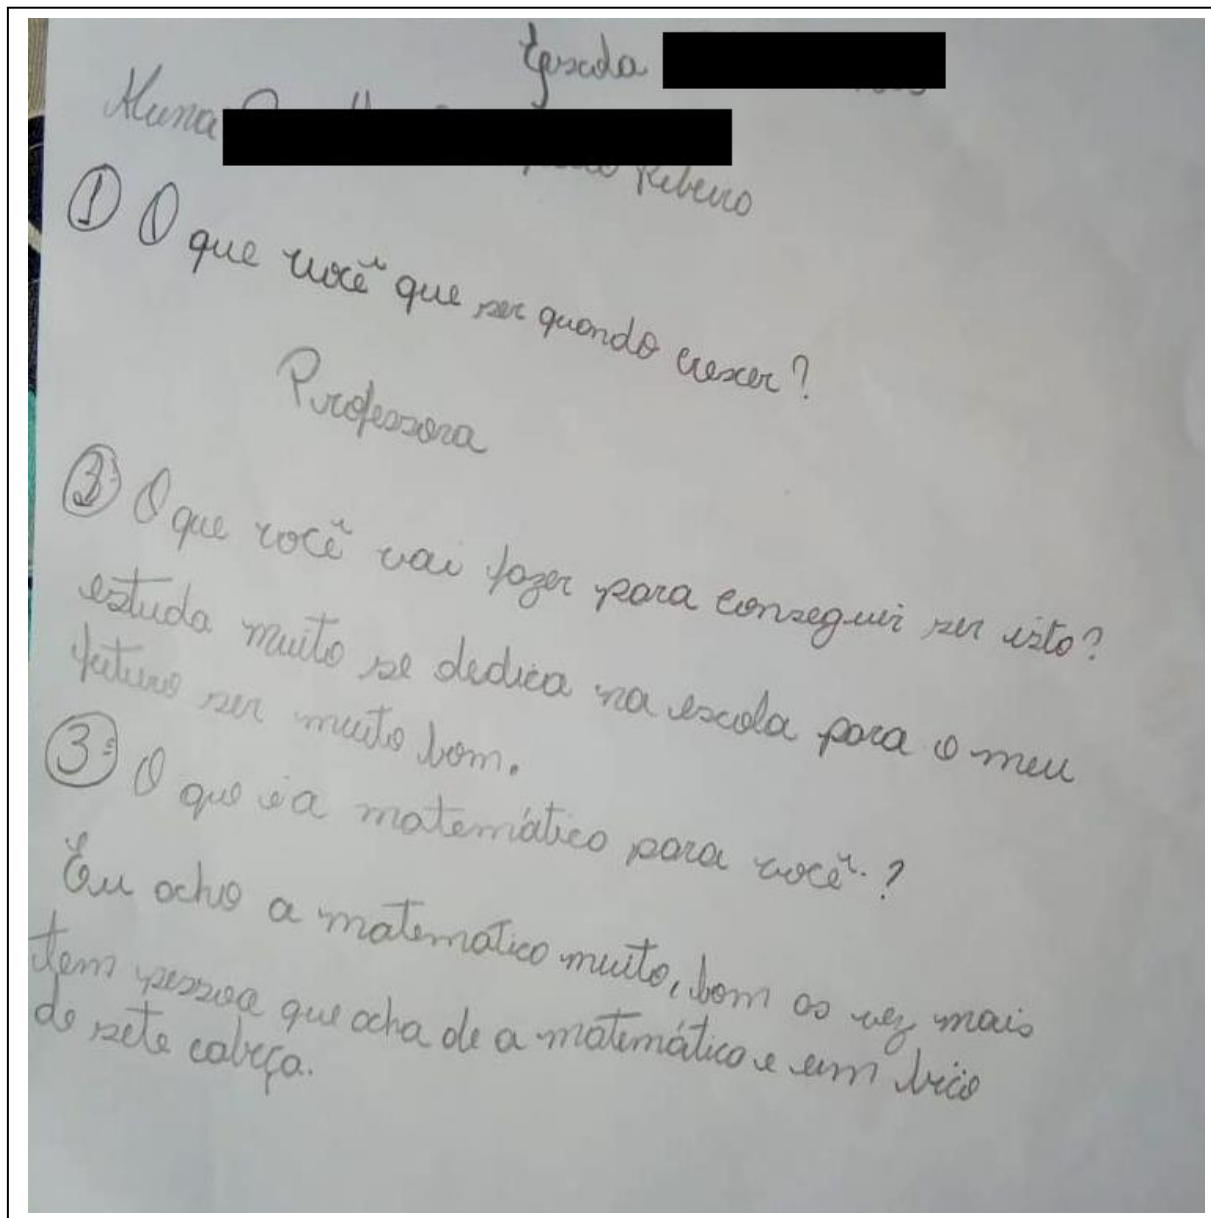 Escola
Aluna
Ribeiro
① O que você que ser quando crescer?
Professora
② O que você vai fazer para conseguir ser isto?
estuda muito se dedica na escola para o meu
futuro ser muito bom.
③ O que é a matemático para você?
Eu acho a matematico muito, bom as vez mais
tem pessoa que acha de a matemático e um bicio
de sete cabeça.